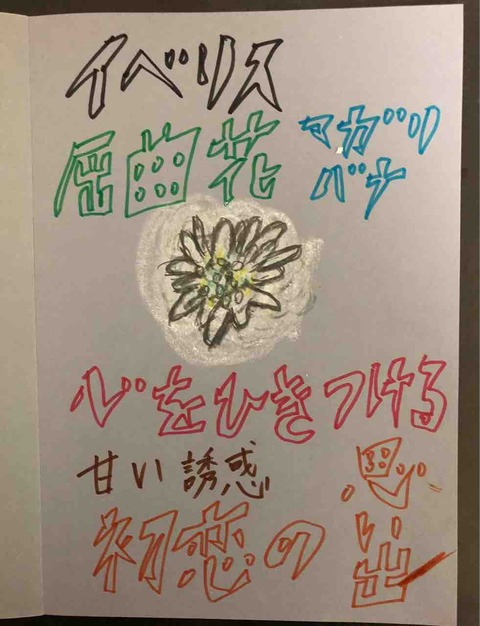 イベリス
屈曲花 マガリ
バナ
心をひきつける
甘い誘惑
初恋の思い出